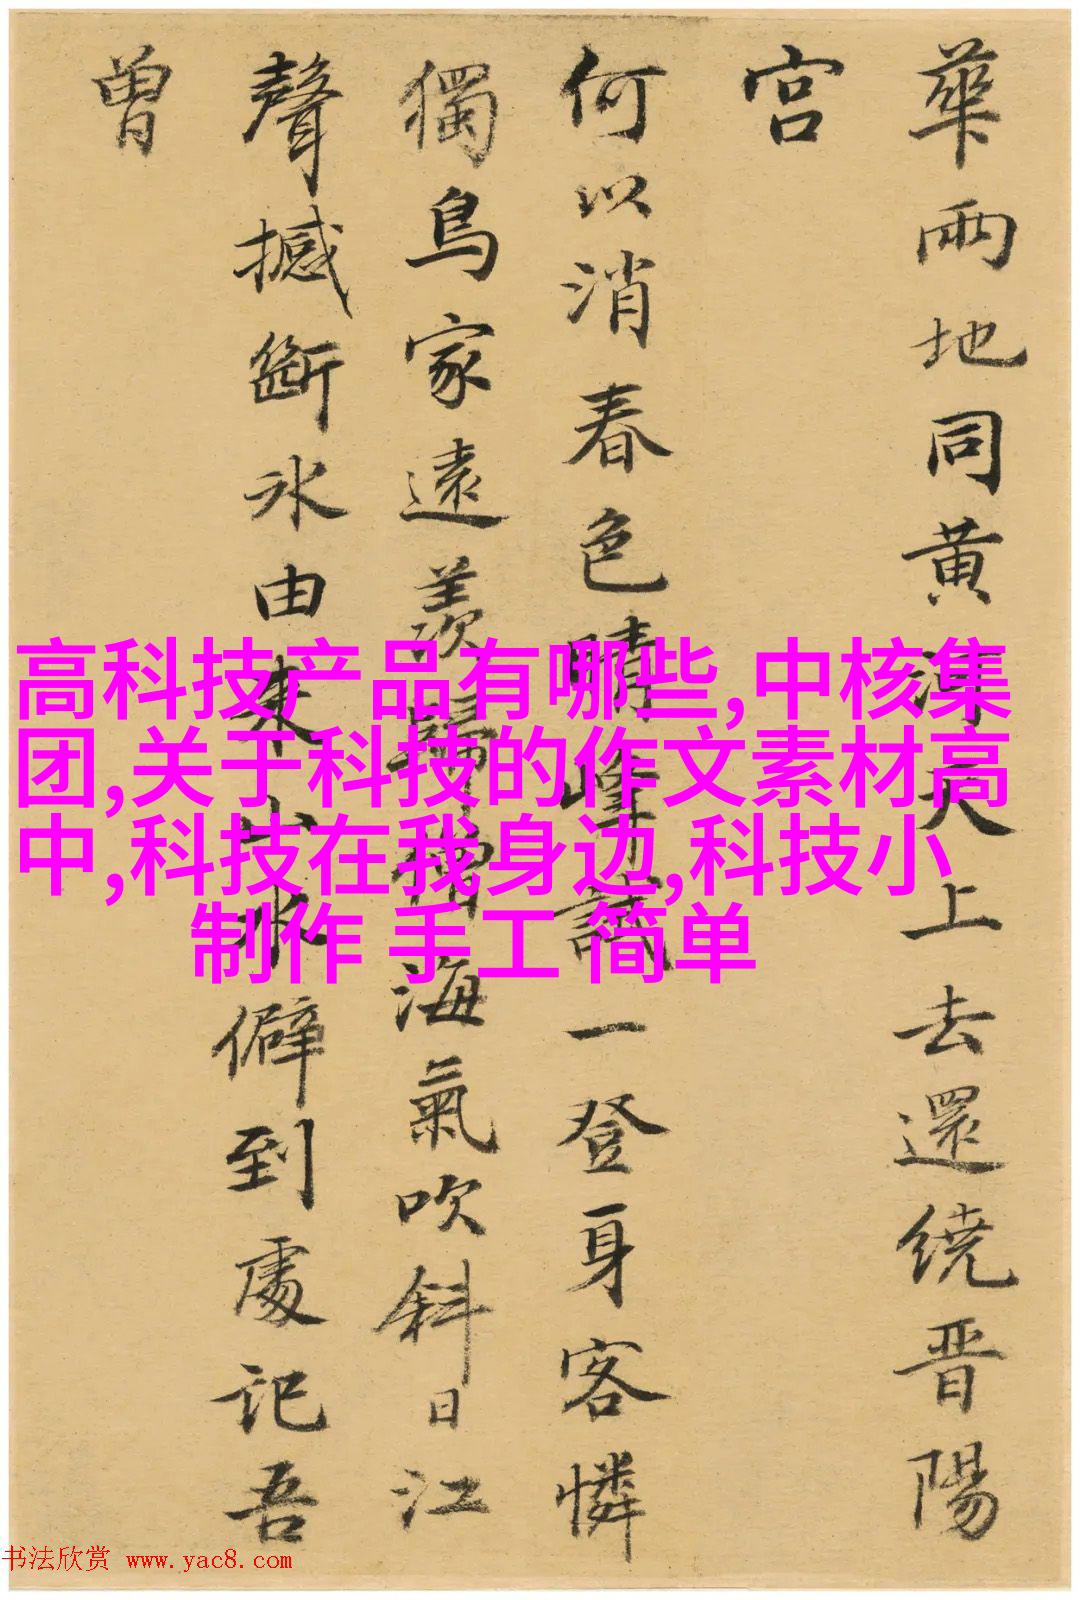 華兩地同黄河天上去還繞晋陽
宫
何以消春色晴峰試一登身客憐
獨鳥家遠羨歸僧海氣吹斜日江
聲撼斷冰由來山水僻到處記吾
曾
高科技产品有哪些,中核集
团,关于科技的作文素材高
中,科技在我身边,科技小
制作 手工 简单
书法欣赏 www.yac8.com